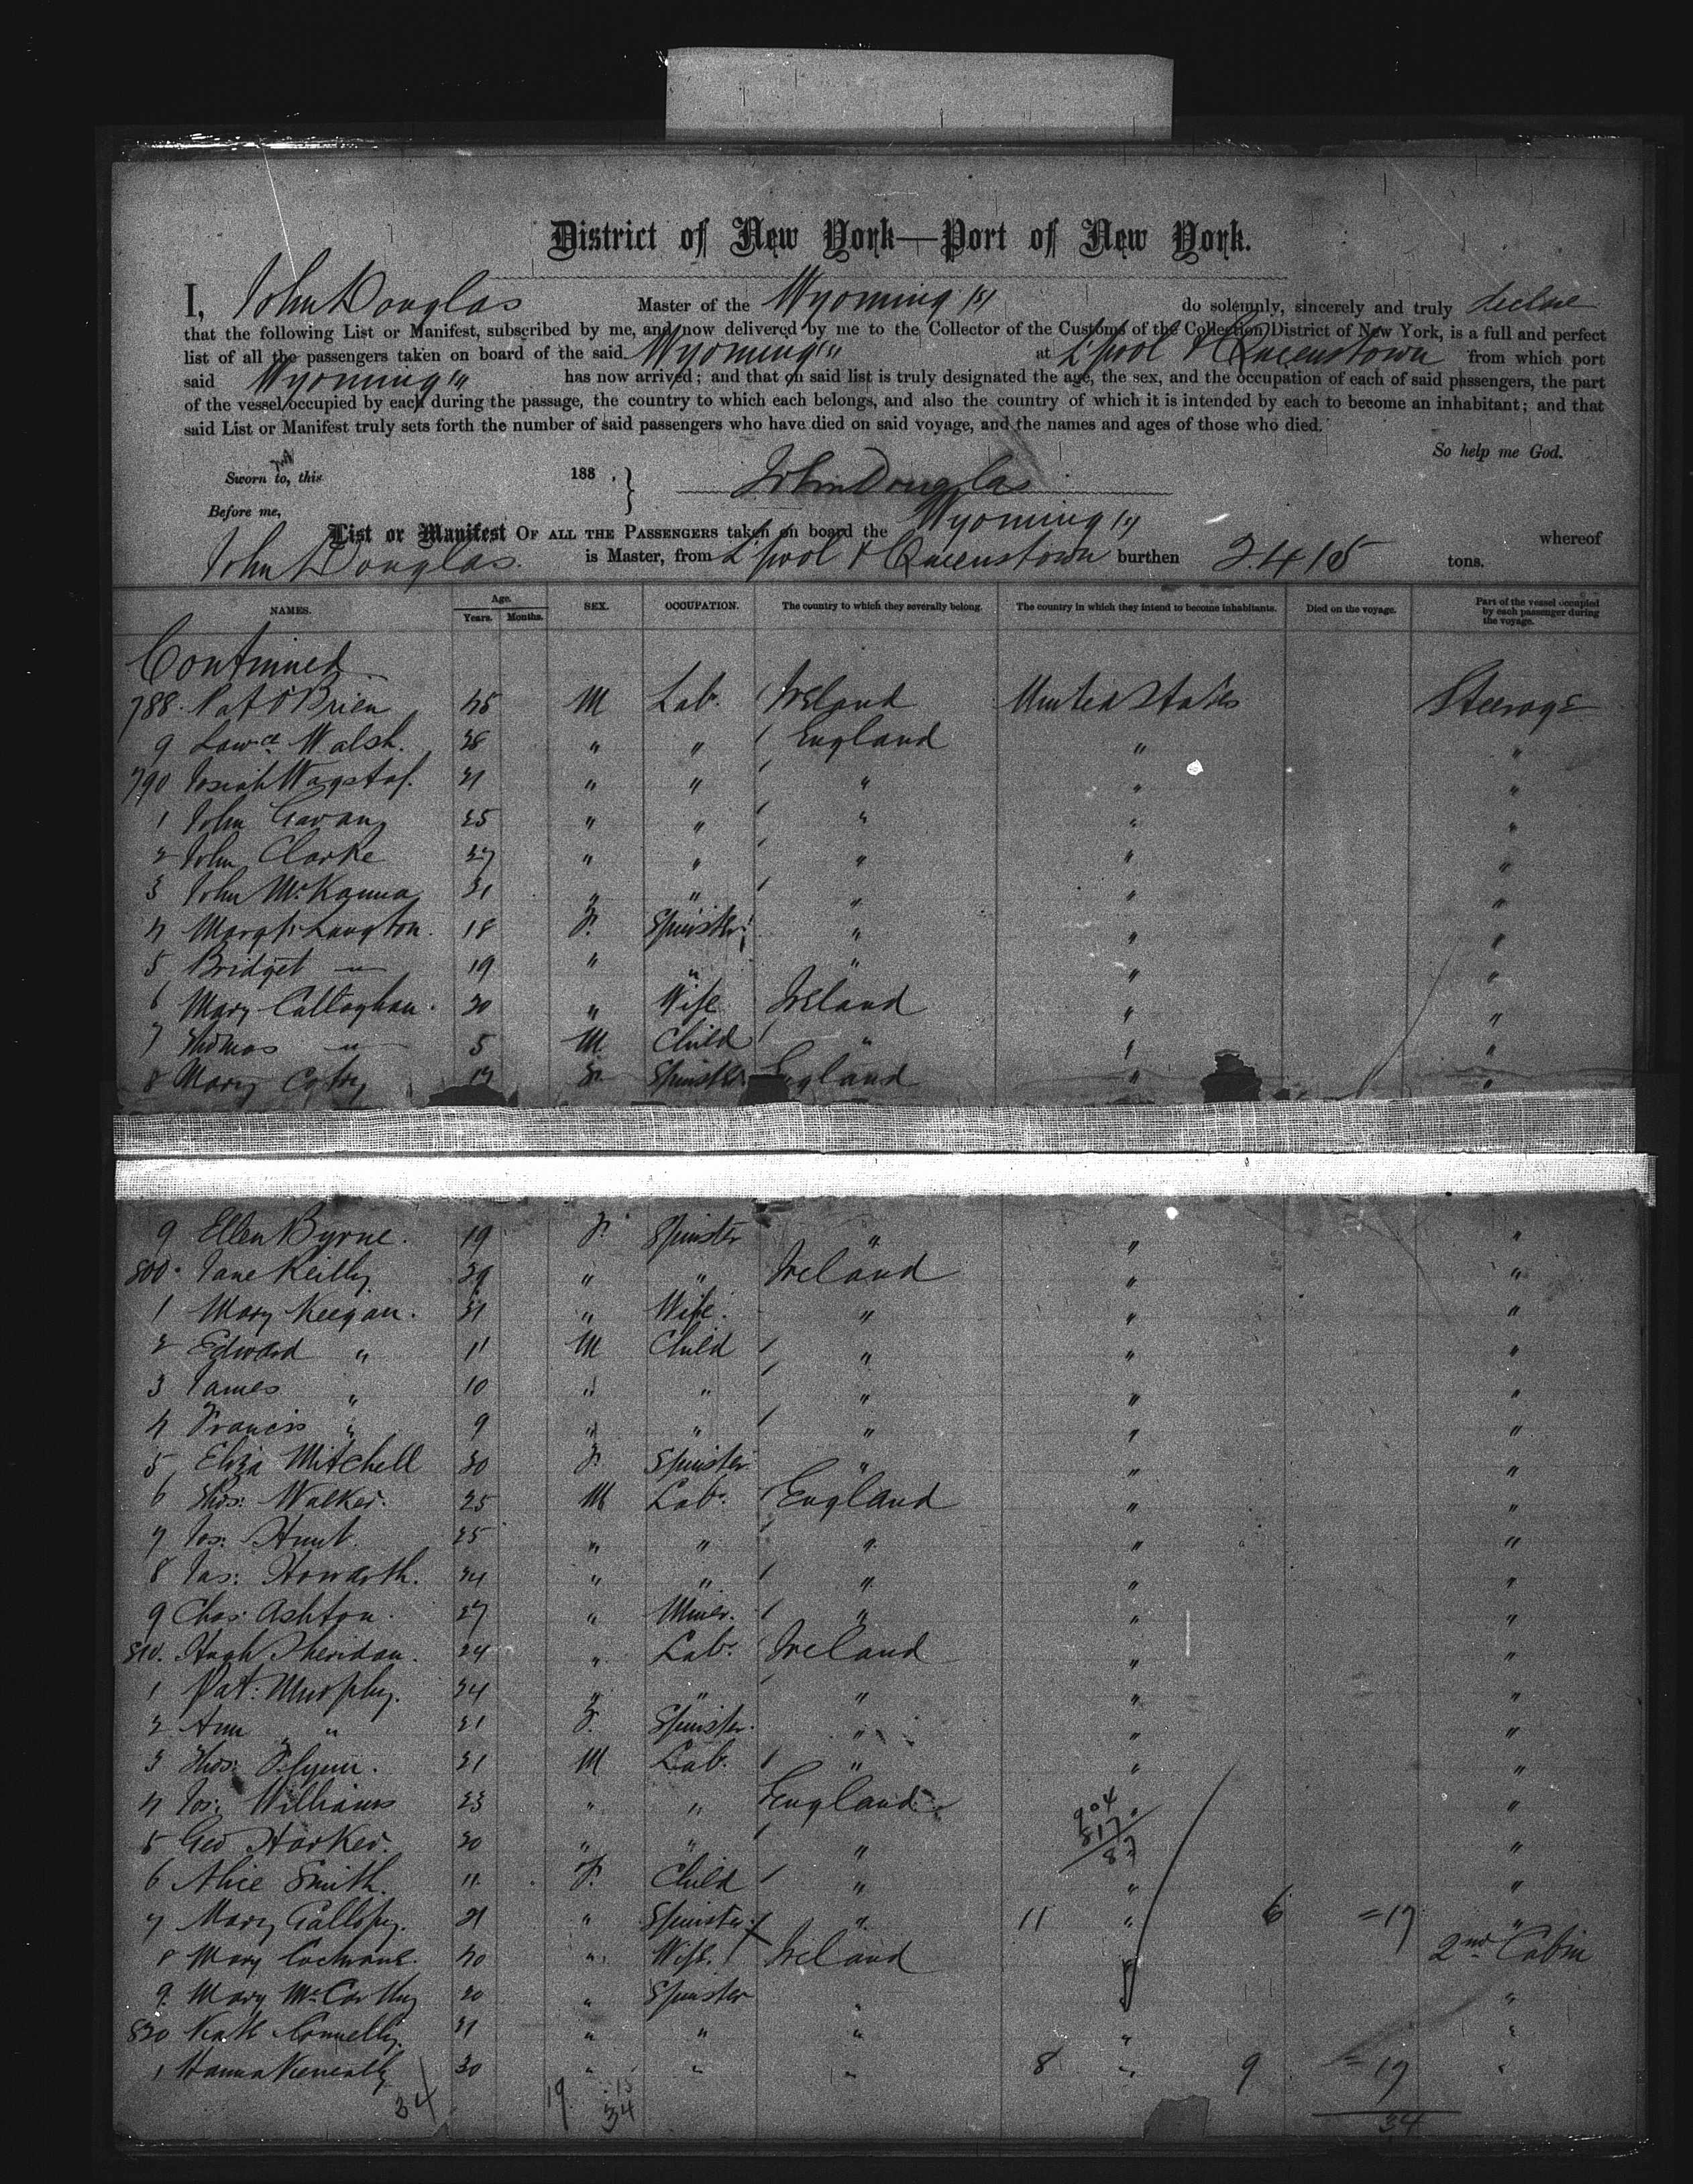 District of New York—Port of New York.
I, John Douglas Master of the Wyoming (s) do solemnly, sincerely and truly declare
that the following List or Manifest, subscribed by me, and now delivered by me to the Collector of the Customs of the Collection District of New York, is a full and perfect
list of all the passengers taken on board of the said Wyoming at L'pool & Queenstown from which port
said Wyoming has now arrived; and that on said list is truly designated the age, the sex, and the occupation of each of said passengers, the part
of the vessel occupied by each during the passage, the country to which each belongs, and also the country of which it is intended by each to become an inhabitant; and that
said List or Manifest truly sets forth the number of said passengers who have died on said voyage, and the names and ages of those who died.
So help me God.
Sworn to, this 188 . John Douglas
Before me,
List or Manifest OF ALL THE PASSENGERS taken on board the Wyoming (s) whereof
John Douglas is Master, from L'pool & Queenstown burthen 2.415 tons.
NAMES. Age. Years. Months. SEX. OCCUPATION. The country to which they severally belong. The country in which they intend to become inhabitants. Died on the voyage. Part of the vessel occupied by each passenger during the voyage.
Continued
788 Pat O'Brien 45 M Lab. Ireland United States Steerage
9 Lawce Walsh. 38 " " England " "
790 Josiah Wagstaf. 21 " " " " "
1 John Gavan 25 " " " " "
2 John Clarke 27 " " " " "
3 John McKanna 31 " " " " "
4 Margt Langton. 18 F. Spinster " " "
5 Bridget " 19 " " " " "
6 Mary Callaghan. 30 " Wife Ireland " "
7 Thomas " 5 M Child " " "
8 Mary F. Spinster England " "
9 Ellen Byrne. 19 F. Spinster " " "
800 Jane Reilly 39 " " Ireland " "
1 Mary Keegan. 31 " Wife. " " "
2 Edward " 11 M Child " " "
3 James " 10 " " " " "
4 Francis " 9 " " " " "
5 Eliza Mitchell 30 F. Spinster " " "
6 Thos: Walker. 25 M Lab. England " "
7 Jos: Hunt. 25 " " " " "
8 Jas: Howarth. 24 " " " " "
9 Chas: Ashton. 27 " Miner. " " "
810. Hugh Sheridan. 24 " Lab. Ireland " "
1 Pat: Murphy. 24 " " " " "
2 Ann " 21 F. Spinster. " " "
3 Thos: Flynn. 21 M Lab. " " "
4 Jos: Williams 23 " " England " "
904
817
87
5 Geo Harker. 30 " " " "
6 Alice Smith. 11 F. Child " " "
7 Mary 21 " Spinster " 11 " 6 =17 "
8 Mary Cochrane. 40 " Wife. Ireland " 2nd Cabin
9. Mary McCarthy 20 " Spinster " " "
820 Connelly. 21 " " " " "
1 Hanna 30 " " " 8 " 9 = 17 "
34 19 15 34
34